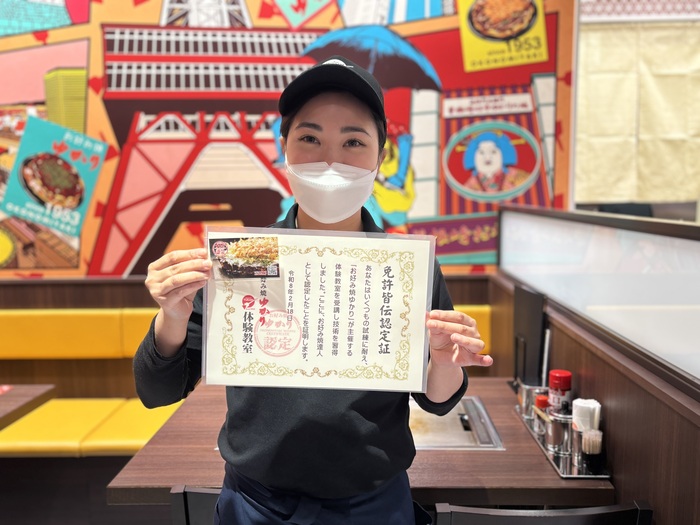 免許皆伝認定証
あなたはいくつもの試練に耐え、
「お好み焼ゆかり」が主催する
体験教室を受講し技術を習得
しました。ここに、お好み焼達人
として認定したことを証明します。
令和8年2月18日
お好み焼 ゆかり
体験教室
認定
since
1953
OKONOMIYAKI
お好み焼
ゆかり
since
1953
OKONOMIYAKI